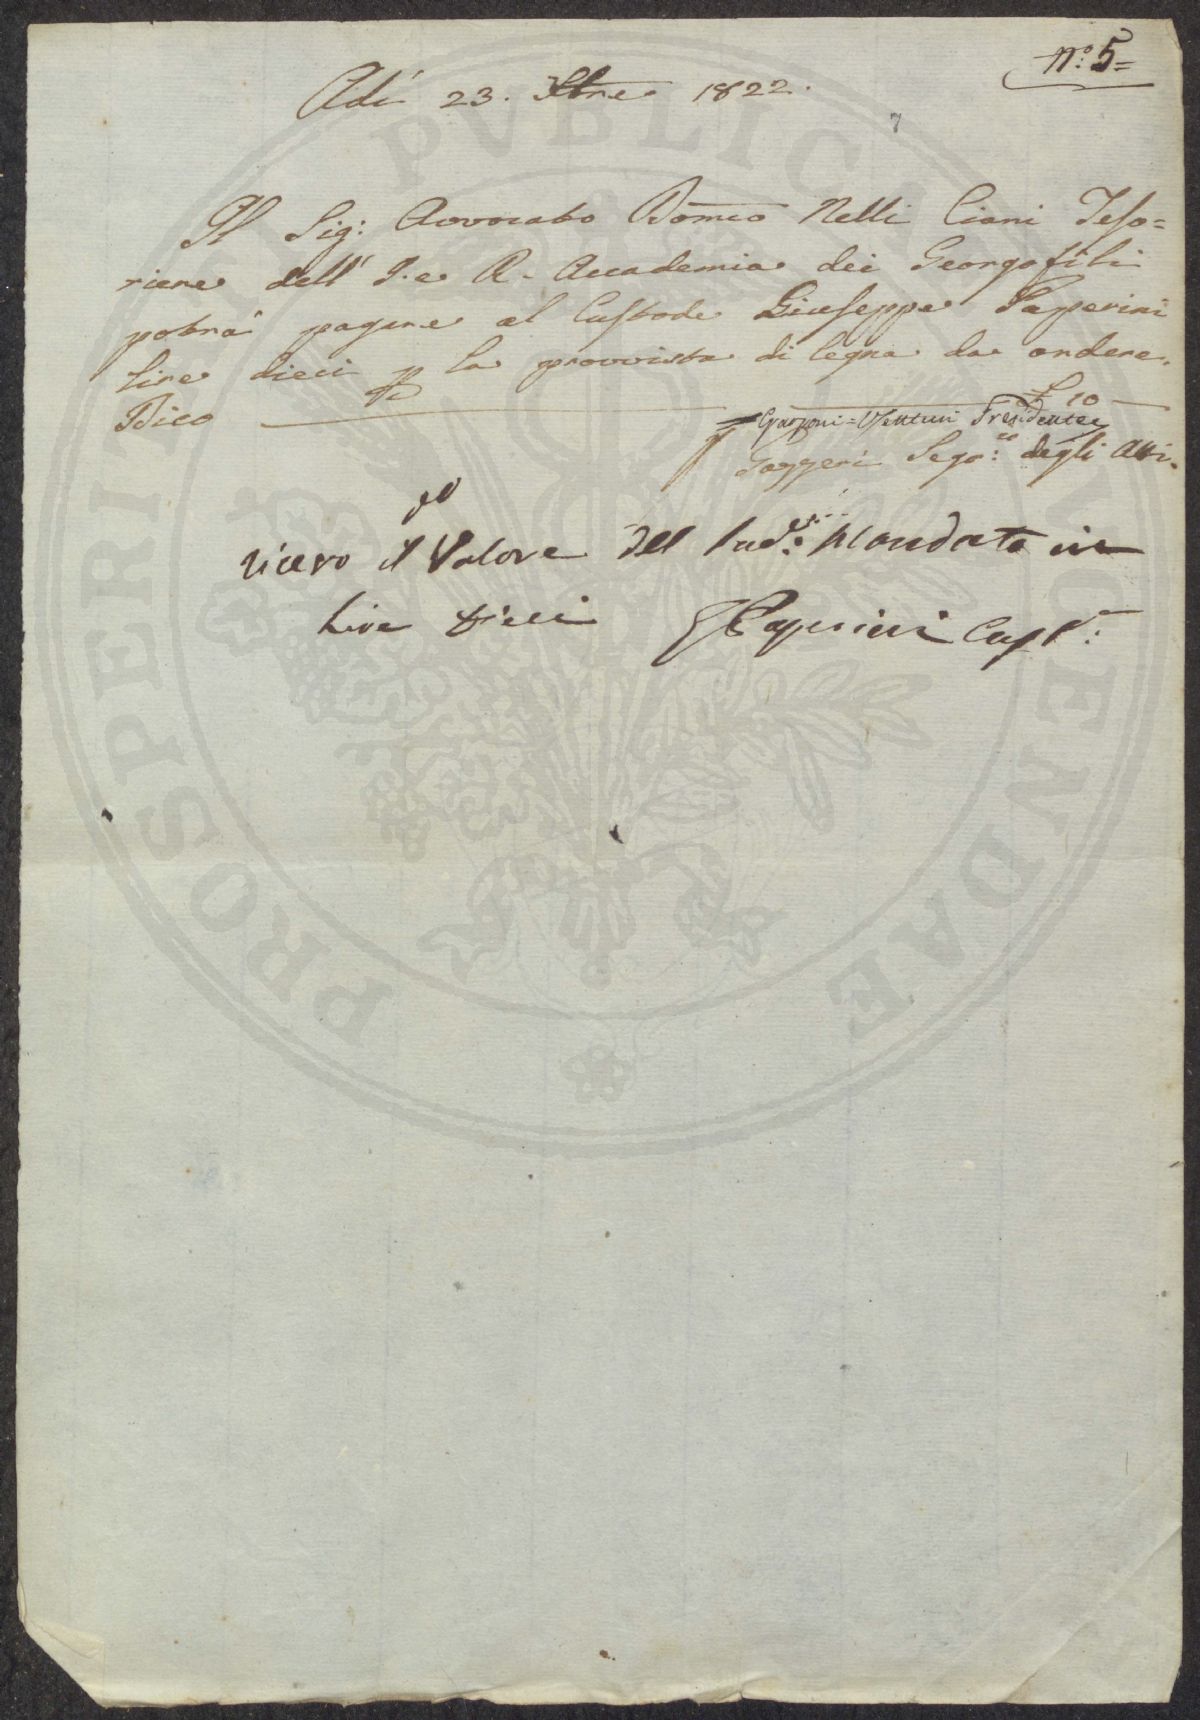 nº: 5=
Adì 23. Xbre 1822.
7
Il Sig: Avvocato Dom̅co Nelli Ciani Teso=
riere dell' I. e R. Accademia dei Georgofili
potrà pagare al Custode Giuseppe Paperini
lire dieci p la provvista di legna da ardere.
Dico £ 10
Garzoni=Venturi Presidente
Gazzeri Segr:io degli Atti.
Il Valore del Sud:
Mandato in
Lire Dieci GPaperini Cust:
PROSPERITATI PVBLICAE AVGENDAE